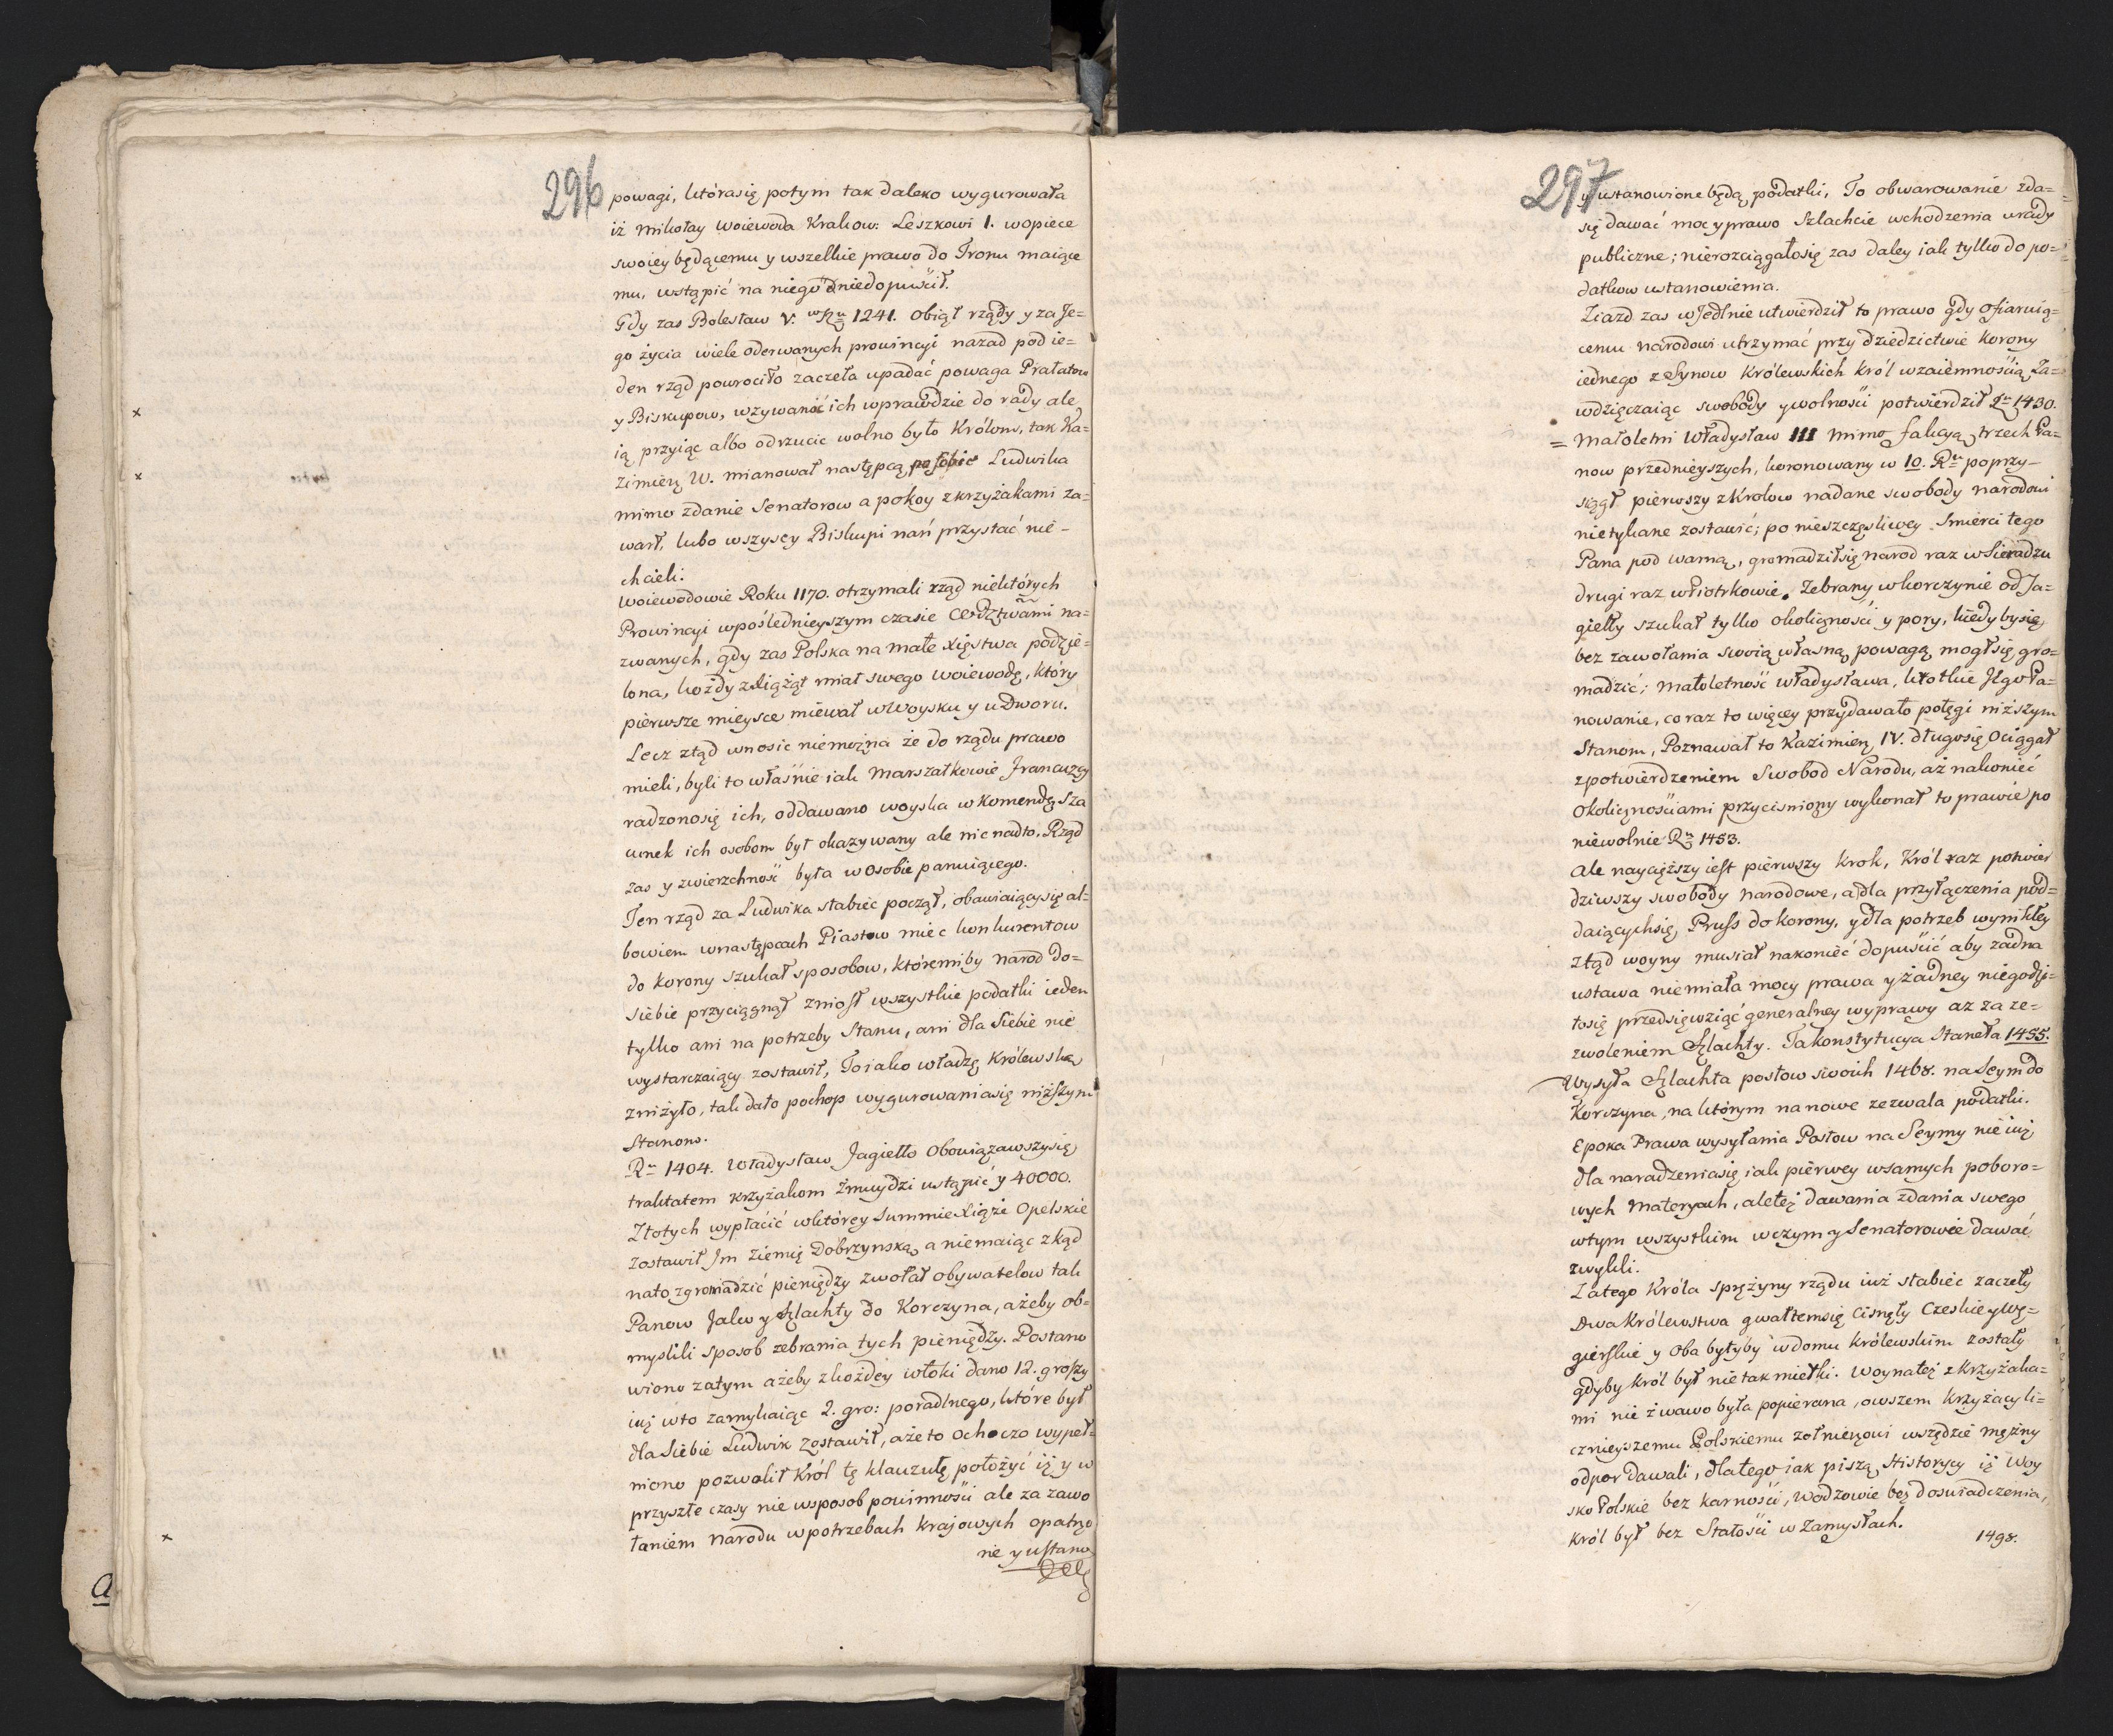 296
powagi, którasię potym tak daleko wygurowała
iż Mikołay Woiewoda Krakow: Leszkowi I. wopiece
swoiey będącemu y wszelkie prawo do Tronu maiące
mu, wstąpić na niego niedopuścił.
Gdy zas Bolesław V. w Ru 1241. obiął rządy y za Je=
go życia wiele oderwanych prowincyi nazad pod ie=
den rząd powrociło zaczeła upadać powaga Prałatow
y Biskupow, wzywano ich wprawdzie do rady ale
ią przyiąc albo odrzucic wolno było Królom, tak Ka=
zimierz W. mianował następcą po sobie Ludwika
mimo zdanie Senatorow a pokoy z krzyżakami za=
warł, lubo wszyscy Biskupi nań przystać nie-
chcieli:
Woiewodowie Roku 1170. otrzymali rząd niektórych
Prowincyi wpóslednieyszym czasie Wdztwami na=
zwanych, gdy zas Polska na małe Xięstwa podzie=
lona, kożdy z Xiążąt miał swego Woiewodę, który
pierwsze mieysce miewał w Woysku y u Dworu.
Lecz ztąd wnosic niemożna że do rządu prawo
mieli, byli to własnie iak Marszałkowie Francuzcy
radzonosię ich, oddawano woyska w Komendę, Sza
cunek ich osobom był okazywany ale nic nadto, Rząd
zas y zwierzchność była w Osobie panuiącego.
Ten rząd za Ludwika słabiec począł, obawiaiącysię al=
bowiem wnastępcach Piastow miec konkurentow
do Korony szukał sposobow, któremiby narod do=
siebie przyciągnął zniosł wszystkie podatki ieden
tylko ani na potrzeby Stanu, ani dla Siebie nie
wystarczaiący zostawił, To iako władzę Królewską
zniżyło, tak dało pochop wygurowaniasię niższym
Stanom.
Ru 1404. Władysław Jagiełło obowiązawszysię
traktatem krzyżakom Żmuydzi ustąpić y 40000.
Złotych wypłacić wktórey Summie Xiąże Opelskie
zostawił Jm Ziemię Dobrzynską, a niemaiąc zkąd
nato zgromadzić pieniędzy zwołał obywatelow tak
Panow Jako y Szlachty do Korczyna, ażeby ob=
myslili sposob zebrania tych pieniędzy. Postano
wiono zatym ażeby z kożdey włoki dano 12. groszy
iuż wto zamykaiąc 2. gro: poradlnego, które był
dla Siebie Ludwik zostawił, aże to ochoczo wypeł=
niono pozwolił Król tę klauzulę położyć iż y w
przyszłe czasy nie wsposob powinności ale za zawo
łaniem Narodu wpotrzebach krajowych opatrzo
ne y ustano
297
y ustanowione będą podatki, To obwarowanie zda=
się dawać moc y prawo Szlachcie wchodzenia wrady
publiczne; nierozciągałosię zas daley iak tylko do po=
datkow ustanowienia.
Ziazd zas w Jedlnie utwierdził to prawo gdy ofiaruią=
cemu narodowi utrzymać przy dziedzictwie Korony
iednego z Synow Królewskich Król wzaiemnością Za=
wdzięczaiąc swobody y wolności potwierdził Ru 1430.
= Małoletni Władysław III mimo fakcyą trzech Pa=
now przednieyszych, koronowany w 10. Ru poprzy-
siągł pierwszy z Krolow nadane swobody narodowi
nietykane zostawić; po nieszczęsliwey Smierci tego
Pana pod Warną, gromadziłsię narod raz w Sieradzu
drugi raz w Piotrkowie. Zebrany w Korczynie od Ja=
giełły szukał tylko okoliczności y pory, kiedybysię
bez zawołania swoią własną powagą mogłsię gro=
madzić; Małoletność Władysława, krotkie Jego Pa=
nowanie, co raz to więcey przydawało potęgi niższym
Stanom, Poznawał to Kazimierz IV. długosię ociągał
z potwierdzeniem Swobod Narodu, aż nakoniec
okolicznościami przycisniony wykonał to prawie po
niewolnie Ru 1453.
Ale naycięższy iest pierwszy krok, Król raz potwier
dziwszy swobody narodowe, a dla przyłączenia pod=
daiącychsię Pruss do Korony, y dla potrzeb wynikłey
ztąd woyny musiał nakoniec dopuścić aby żadna
ustawa niemiała mocy prawa y żadney niegodzi=
łosię przedsięwziąć generalney wyprawy aż za ze=
zwoleniem Szlachty. Ta konstytucya Staneła 1455.
Wysyła Szlachta posłow swoich 1468. na Seym do
Korczyna, na którym na nowe zezwala podatki.
Epoka Prawa wysyłania Posłow na Seymy nie iuż
dla naradzeniasię iak pierwey wsamych poboro=
wych materyach, ale też dawania zdania swego
wtym wszystkim wczym y Senatorowie dawać
zwykli.
Zatego Króla sprężyny rządu iuż słabiec zaczeły
Dwa Królewstwa gwałtemsię cisnęły Czeskie y Wę=
gierskie y oba byłyby w domu Królewskim zostały
gdyby Król był nie tak mietki. Woyna też z krzyżaka=
mi nie żwawo była popierana, owszem krzyżacy li=
cznieyszemu Polskiemu żołnierzowi wszędzie mężny
odpor dawali, dlatego iak piszą Historycy iż woy
sko Polskie bez karności, Wodzowie bez doswiadczenia,
Król był bez Stałości w Zamysłach.
1498.
a